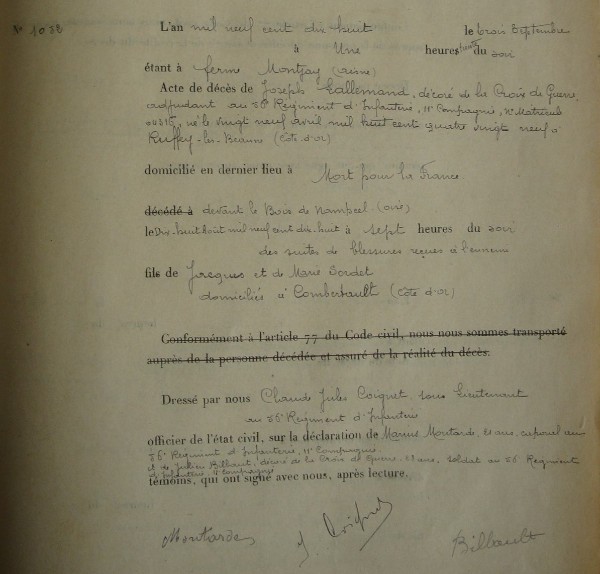 N° 1038
L'an mil neuf cent dix huit le trois Septembre
à Une heures trente du soir
étant à ferme Montjay (Aisne)
Acte de décès de Joseph Lallemand, décoré de la Croix de Guerre,
adjudant au 56e Régiment d'Infanterie, 11e Compagnie, N° Matricule
né le vingt neuf avril mil huit cent quatre vingt neuf à
Ruffey-les-Beaune (Côte d'Or)
domicilié en dernier lieu à Mort pour la France.
décédé à devant le Bois de Nampcel (Oise)
le Dix-huit août mil neuf cent dix-huit à sept heures du soir
des suites de blessures reçues à l'ennemi
fils de Jacques et de Marie Sordet
domiciliés à Combertault (Côte d'Or)
Conformément à l'article 77 du Code civil, nous nous sommes transporté
auprès de la personne décédée et assuré de la réalité du décès.
Dressé par nous Claude Jules Coignet, sous lieutenant
au 56e Régiment d'Infanterie
officier de l'état civil, sur la déclaration de Marius Moutarde, ans, caporal au
56e Régiment d'Infanterie, 11e Compagnie
et de Julien Billault, décoré de la Croix de Guerre, ans, soldat au 56 Régiment
d'Infanterie, Compagnie
témoins, qui ont signé avec nous, après lecture.
Moutarde J. Coignet Billault